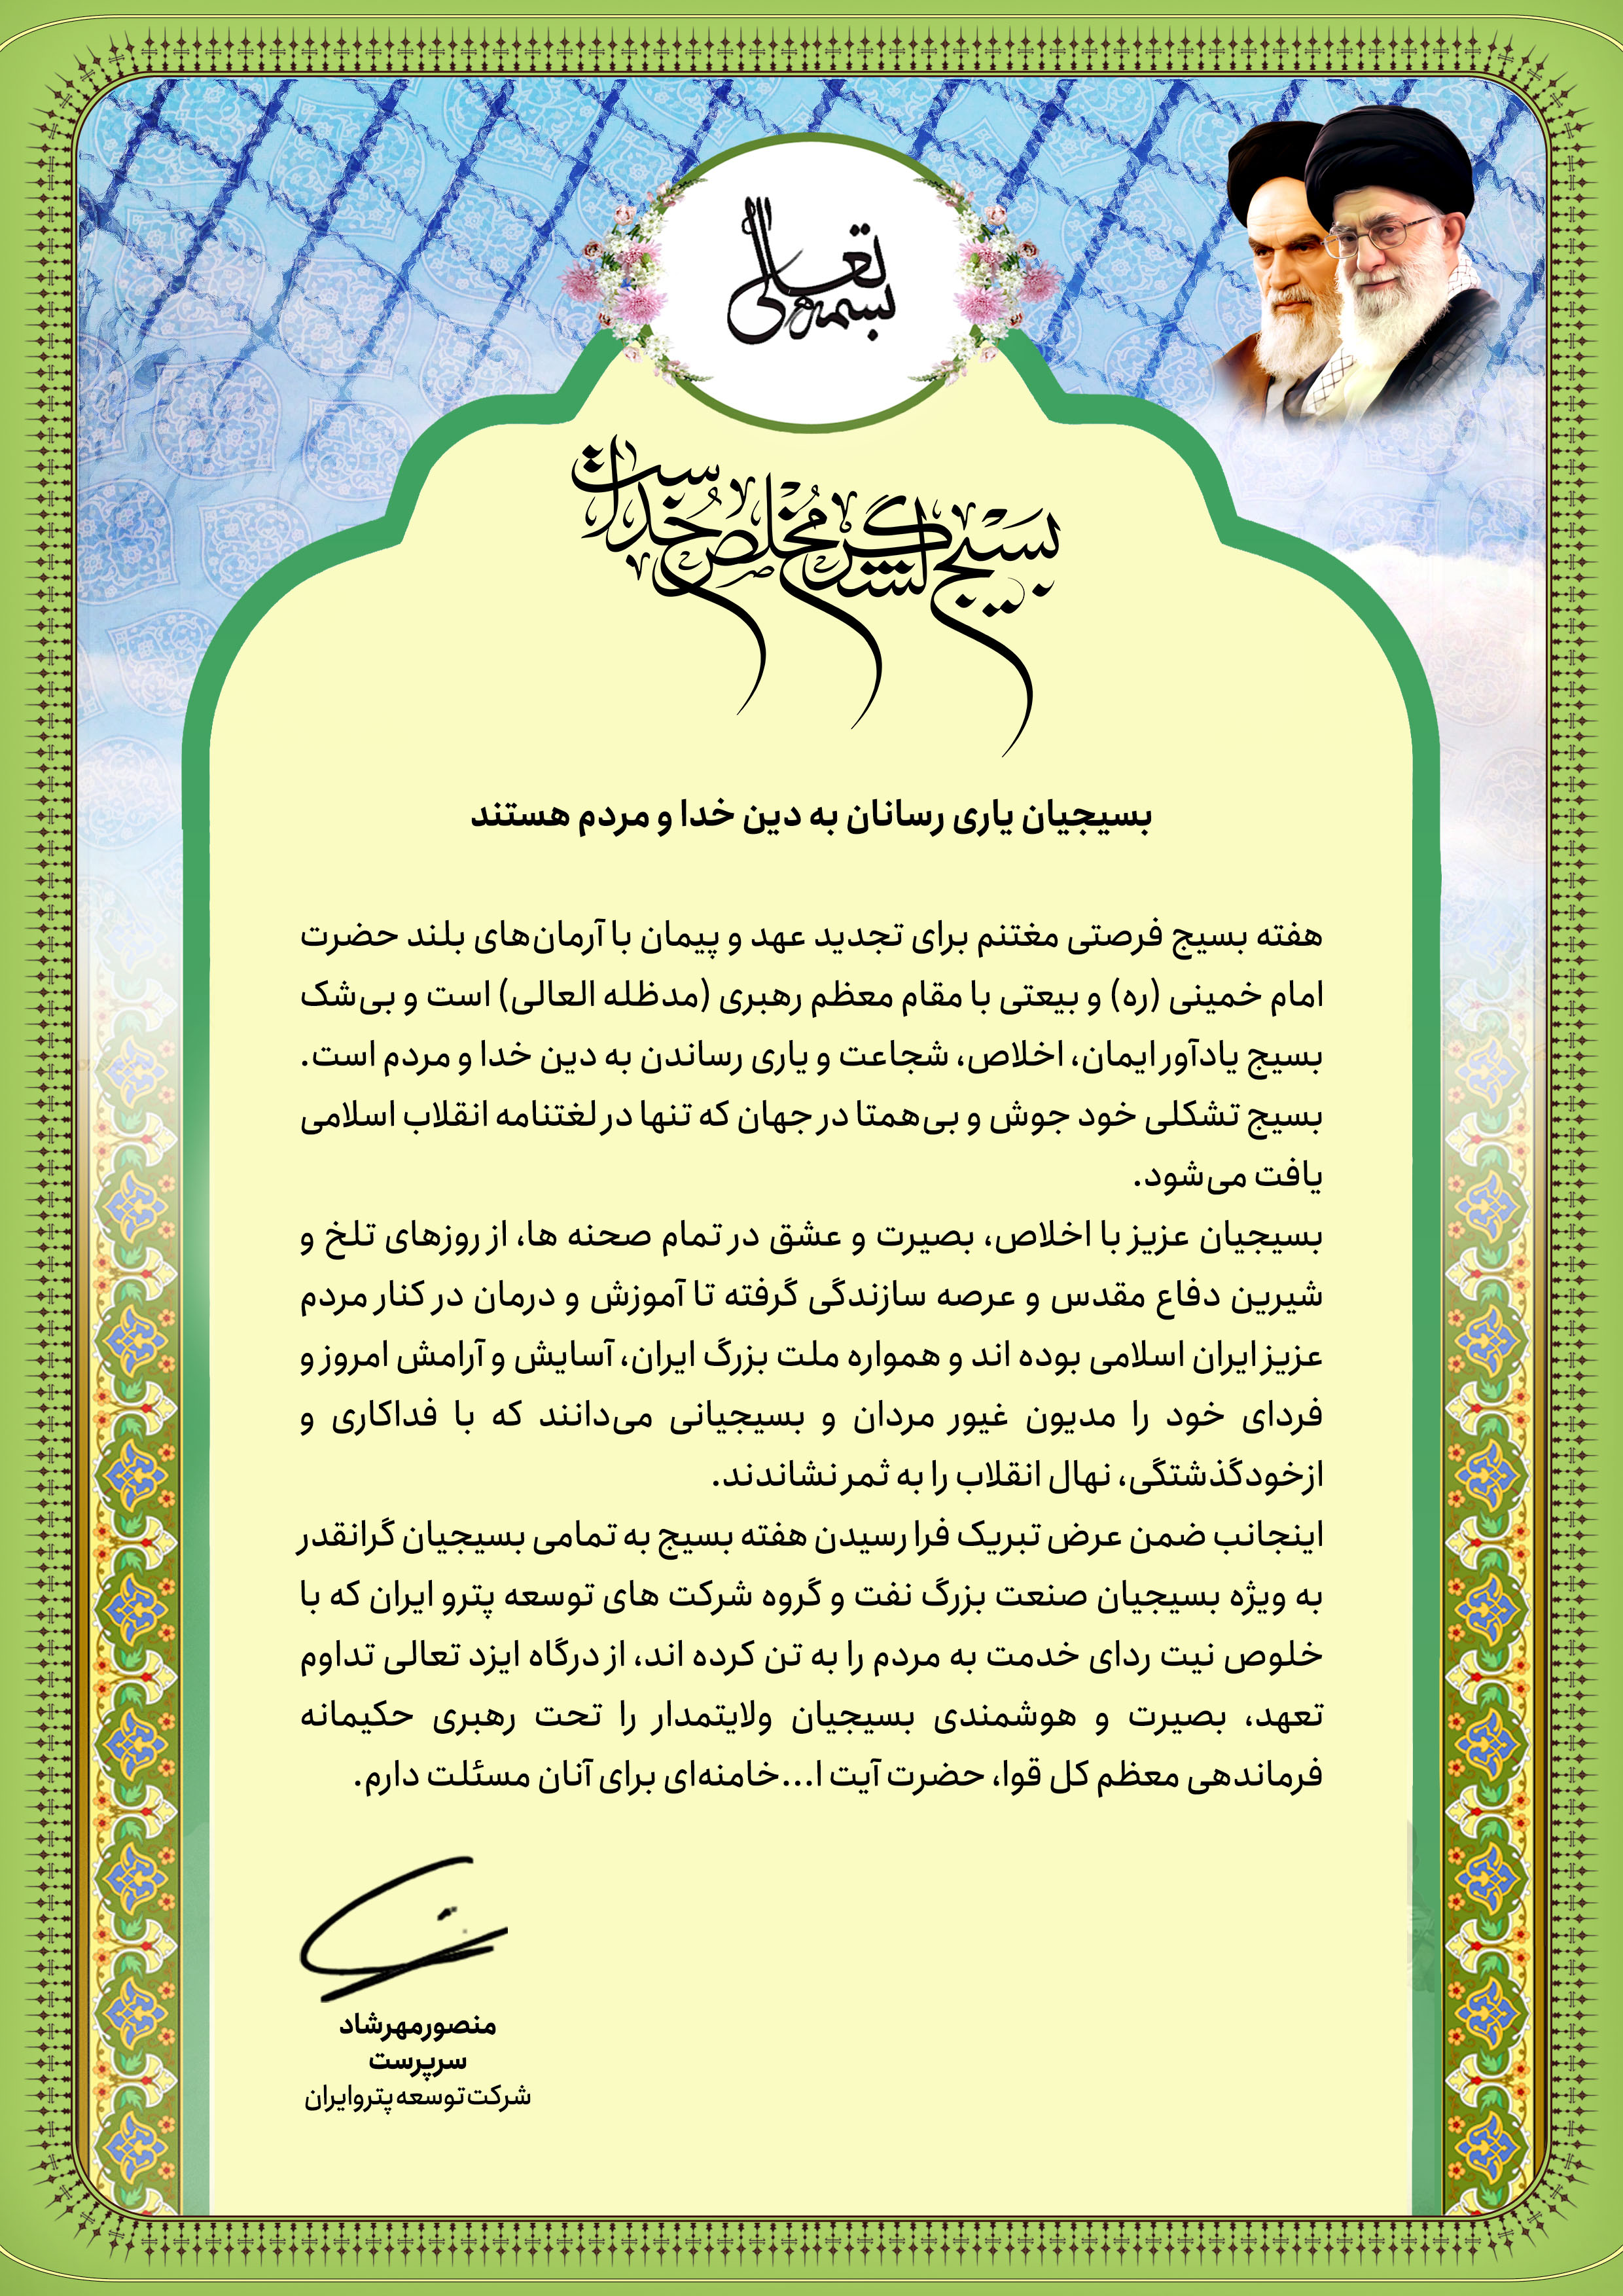 بسمه تعالی
بسیج لشکر مخلص خداست
بسیجیان یاری رسانان به دین خدا و مردم هستند
هفته بسیج فرصتی مغتنم برای تجدید عهد و پیمان با آرمان‌های بلند حضرت
امام خمینی (ره) و بیعتی با مقام معظم رهبری (مدظله العالی) است و بی‌شک
بسیج یادآور ایمان، اخلاص، شجاعت و یاری رساندن به دین خدا و مردم است.
بسیج تشکلی خود جوش و بی‌همتا در جهان که تنها در لغتنامه انقلاب اسلامی
یافت می‌شود.
بسیجیان عزیز با اخلاص، بصیرت و عشق در تمام صحنه ها، از روزهای تلخ و
شیرین دفاع مقدس و عرصه سازندگی گرفته تا آموزش و درمان در کنار مردم
عزیز ایران اسلامی بوده اند و همواره ملت بزرگ ایران، آسایش و آرامش امروز و
فردای خود را مدیون غیور مردان و بسیجیانی می‌دانند که با فداکاری و
ازخودگذشتگی، نهال انقلاب را به ثمر نشاندند.
اینجانب ضمن عرض تبریک فرا رسیدن هفته بسیج به تمامی بسیجیان گرانقدر
به ویژه بسیجیان صنعت بزرگ نفت و گروه شرکت های توسعه پترو ایران که با
خلوص نیت ردای خدمت به مردم را به تن کرده اند، از درگاه ایزد تعالی تداوم
تعهد، بصیرت و هوشمندی بسیجیان ولایتمدار را تحت رهبری حکیمانه
فرماندهی معظم کل قوا، حضرت آیت ا...خامنه‌ای برای آنان مسئلت دارم.
منصورمهرشاد
سرپرست
شرکت توسعه پتروایران